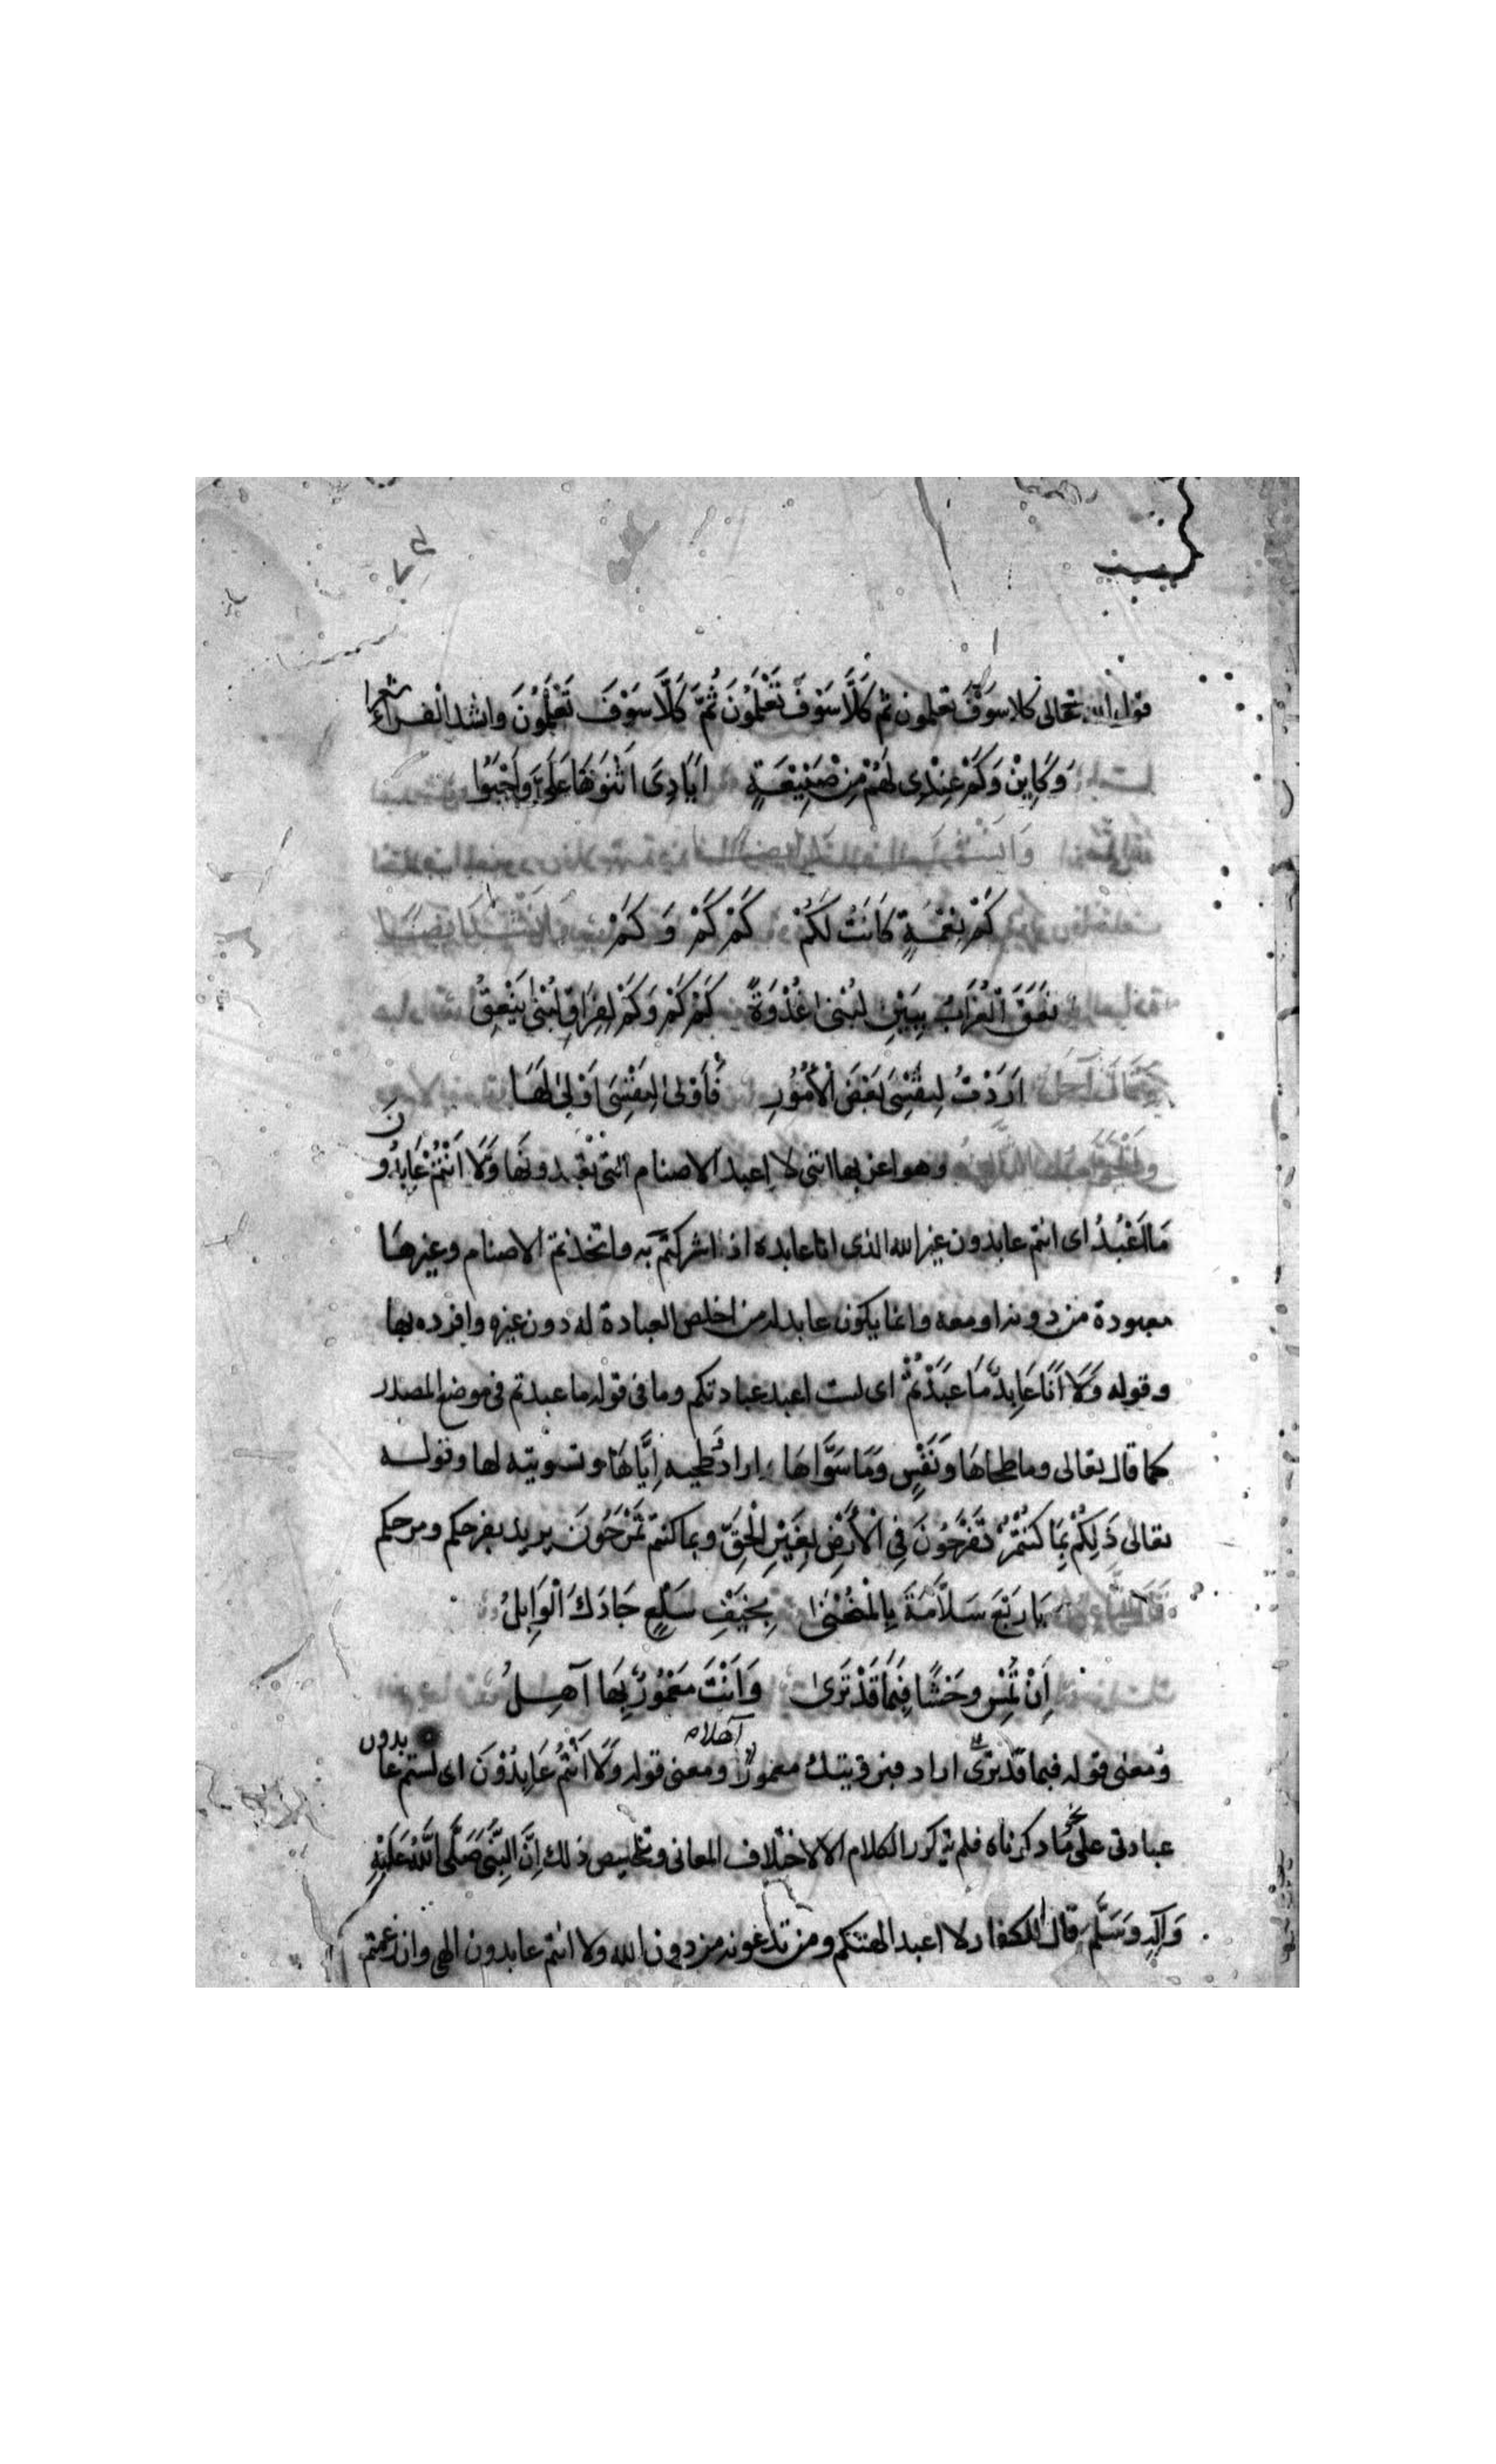 قول الله تعالى كلا سوف تعلمون ثم كَلَّا سَوْفَ تَعْلَمُونَ ثُمَّ كَلَّا سَوْفَ تَعْلَمُونَ وانشد الفراء شعرا
وَكَايِنْ وَكَمْ عِنْدِى لَهُمْ مِنْ صَنِيْعَةٍ اَيَادِىَ اَثْنَوْهَا عَلَىَّ وَاَوْجَبُوْا
كَمْ نِعْمَةٍ كَانَتْ لَكُمْ كَمْ كَمْ وَكَمْ
نَعَقَ الْغُرَابُ بِبَيْنِ لُبْنٰى غُدْوَةً كَمْ كَمْ وَكَمْ لِفِرَاقِ لُبْنٰى يَنْعِقُ
اَرَدْتُ لِنَفْسِىْ بَعْضَ الْاُمُوْرِ فَاَوْلٰى لِنَفْسِىَ اَوْلٰى لَهَا
وهو اعن بها انى لا اعبد الاصنام التى تعبدونها وَلَا اَنْتُمْ عَابِدُونَ
مَا اَعْبُدُ اى انتم عابدون غير الله الذى انا عابده اذ اشركتم به واتخذتم الاصنام وغيرها
معبودة من دونه او معه وانما يكون عابدا له من اخلص العبادة له دون غيره وافرده بها
وقوله وَلَا اَنَا عَابِدٌ مَا عَبَدْتُمْ اى لست اعبد عبادتكم وما فى قوله ما عبدتم فى موضع المصدر
كما قال تعالى وما طحاها وَنَفْسٍ وَمَا سَوَّاهَا اراد طحيه اِيَّاهَا وتسويته لها وقوله
تعالى ذَلِكُمْ بِمَا كُنْتُمْ تَفْرَحُوْنَ فِى الْاَرْضِ بِغَيْرِ الْحَقِّ وبما كنتم تَمْرَحُوْنَ يريد بفرحكم ومرحكم
يَا رَبْعَ سَلَّامَةَ بِالْمُنْحَنٰى بِخَيْفِ سَلْعٍ جَادَكَ الْوَابِلُ
اِنْ تُمْسِ وحَشًا فِيْمَا قَدْ تَرَىٰ وَاَنْتَ مَعْمُوْرٌ بِهَا آهِلُ
ومعنى قوله فيما قد ترى اراد فبرؤيتك معمورا آهلا ومعنى قوله وَلَا اَنْتُمْ عَابِدُوْنَ اى لستم عابدون
عبادتى على نحو ما ذكرناه فلم يتكرر الكلام الا لاختلاف المعانى وتلخيص ذلك اِنَّ النَّبِىَّ صَلَّى اللّٰهُ عَلَيْهِ
وَآلِهِ وَسَلَّمَ قال للكفار لا اعبد الهتكم ومن تدعونه من دون الله ولا انتم عابدون الهى وان زعمتم